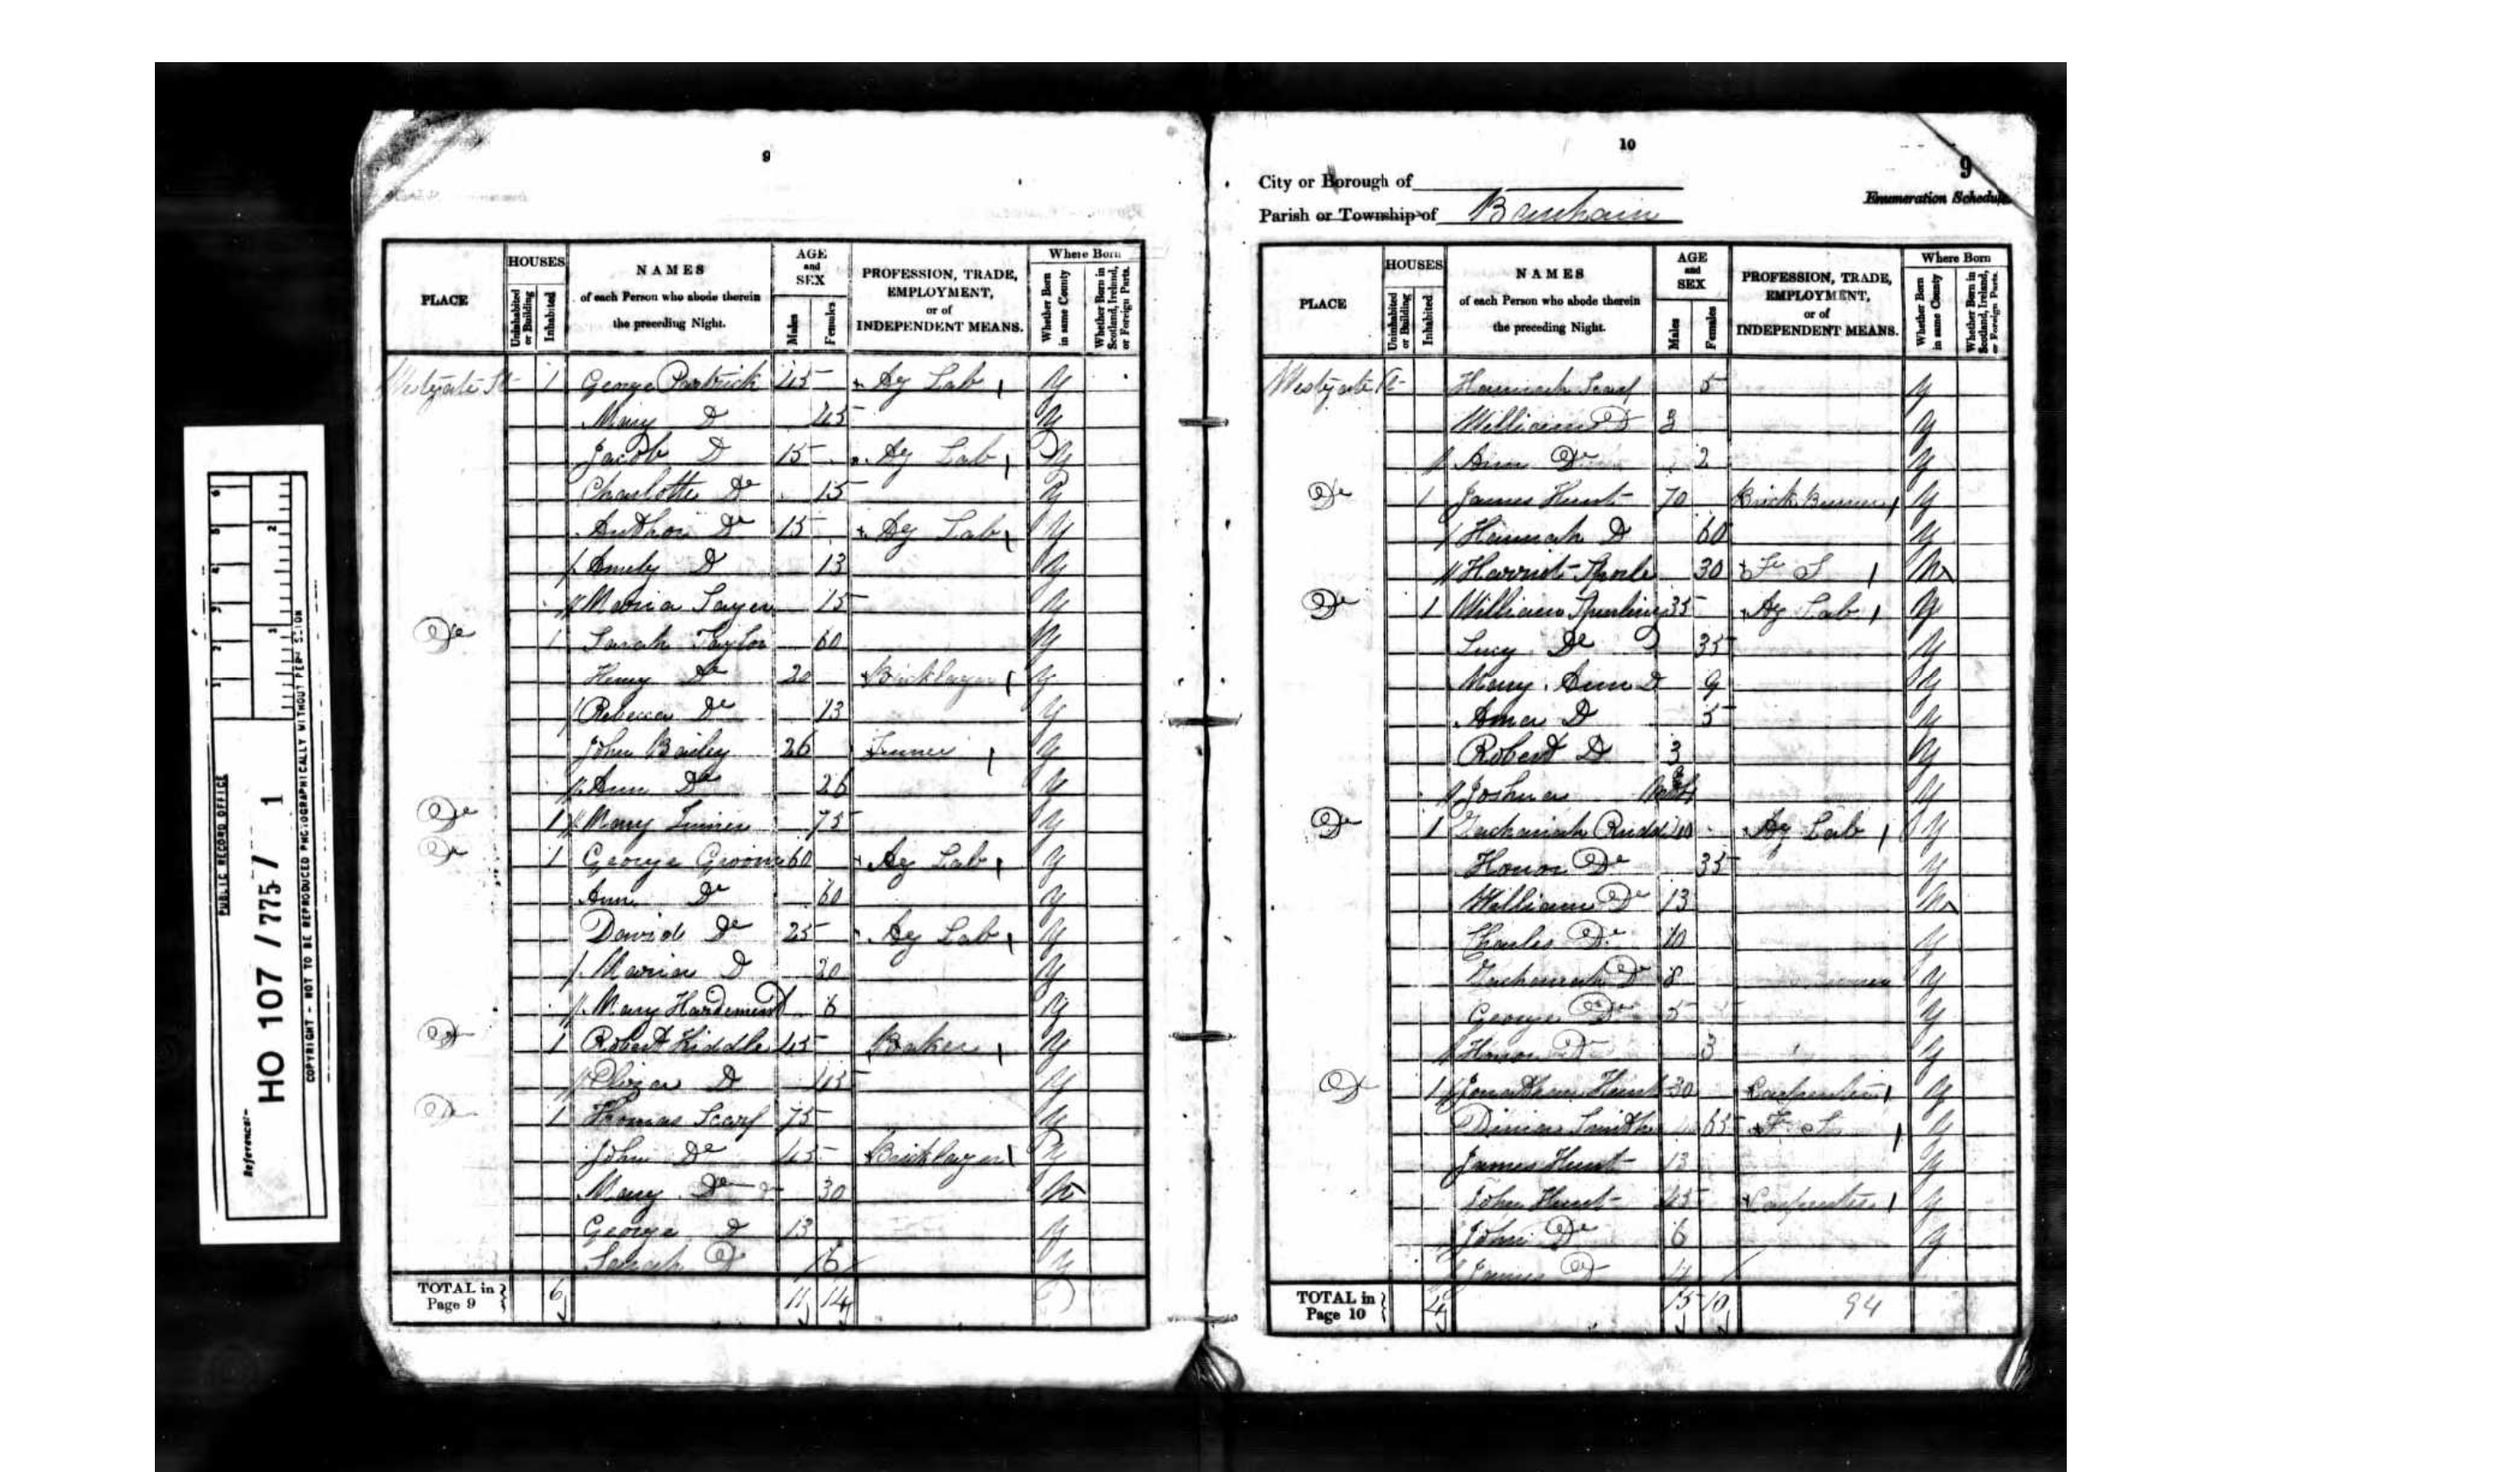 9
PLACE
HOUSES
Uninhabited or Building
Inhabited
NAMES of each Person who abode therein the preceding Night.
AGE and SEX
Males
Females
PROFESSION, TRADE, EMPLOYMENT, or of INDEPENDENT MEANS.
Where Born
Whether Born in same County
Whether Born in Scotland, Ireland, or Foreign Parts.
Westgate St 1 George Partrick 45 Ag Lab Y
Mary D 45 Y
Jacob D 15 Ag Lab Y
Charlotte Do 15 Y
Do 15 Ag Lab Y
D 13 Y
Maria Sayer 15 Y
Do 1 Sarah Taylor 60 Y
Henry Do 20 Bricklayer Y
Rebecca Do 13 Y
John Bailey 26 Y
Ann Do 26 Y
Do 1 Mary 75 Y
Do 1 George Groom 60 Ag Lab Y
Ann Do 60 Y
David Do 25 Ag Lab Y
Maria D 20 Y
Mary 6 Y
Do 1 Robert Kiddle 45 Baker Y
D 45 Y
Do 1 Thomas Scarf 75 Y
John Do 45 Bricklayer Y
Mary Do 30 N
George D 13 Y
Sarah D 6 Y
TOTAL in Page 9 6 11 14
10
9
City or Borough of
Enumeration Schedule.
Parish or Township of
PLACE
HOUSES
Uninhabited or Building
Inhabited
NAMES of each Person who abode therein the preceding Night.
AGE and SEX
Males
Females
PROFESSION, TRADE, EMPLOYMENT, or of INDEPENDENT MEANS.
Where Born
Whether Born in same County
Whether Born in Scotland, Ireland, or Foreign Parts.
Westgate St Hannah Scarf 5 Y
William D 3 Y
Ann Do 2 Y
Do 1 James Hunt 70 Brick Y
Hannah D 60 Y
Harriet 30 F S N
Do 1 William 35 Ag Lab Y
Lucy Do 35 Y
Mary Ann D 9 Y
D 5 Y
Robert D 3 Y
Joshua Y
Do 1 Zachariah Rudd 40 Ag Lab Y
Honor Do 35 Y
William Do 13 N
Charles Do 10 Y
Zachariah Do 8 Y
George Do 5 Y
Honor D 3 Y
Do 1 Jonathan Hunt 30 Carpenter Y
Smith 65 F S Y
James Hunt 13 Y
John Hunt 45 Carpenter Y
John Do 6 Y
James D 4
TOTAL in Page 10 4 15 10 94
PUBLIC RECORD OFFICE
Reference:- HO 107/775/1
COPYRIGHT - NOT TO BE REPRODUCED PHOTOGRAPHICALLY WITHOUT PERMISSION